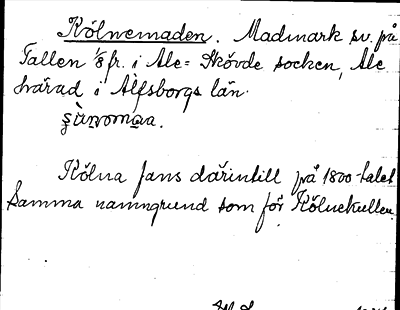 Kölnemaden. Madmark sv. på
Tallen 1/8 fr. i Ale-Skövde socken, Ale
härad i Älfsborgs län.
Kölna fans därintill på 1800-talet
Samma namngrund som för Kölnekullen.